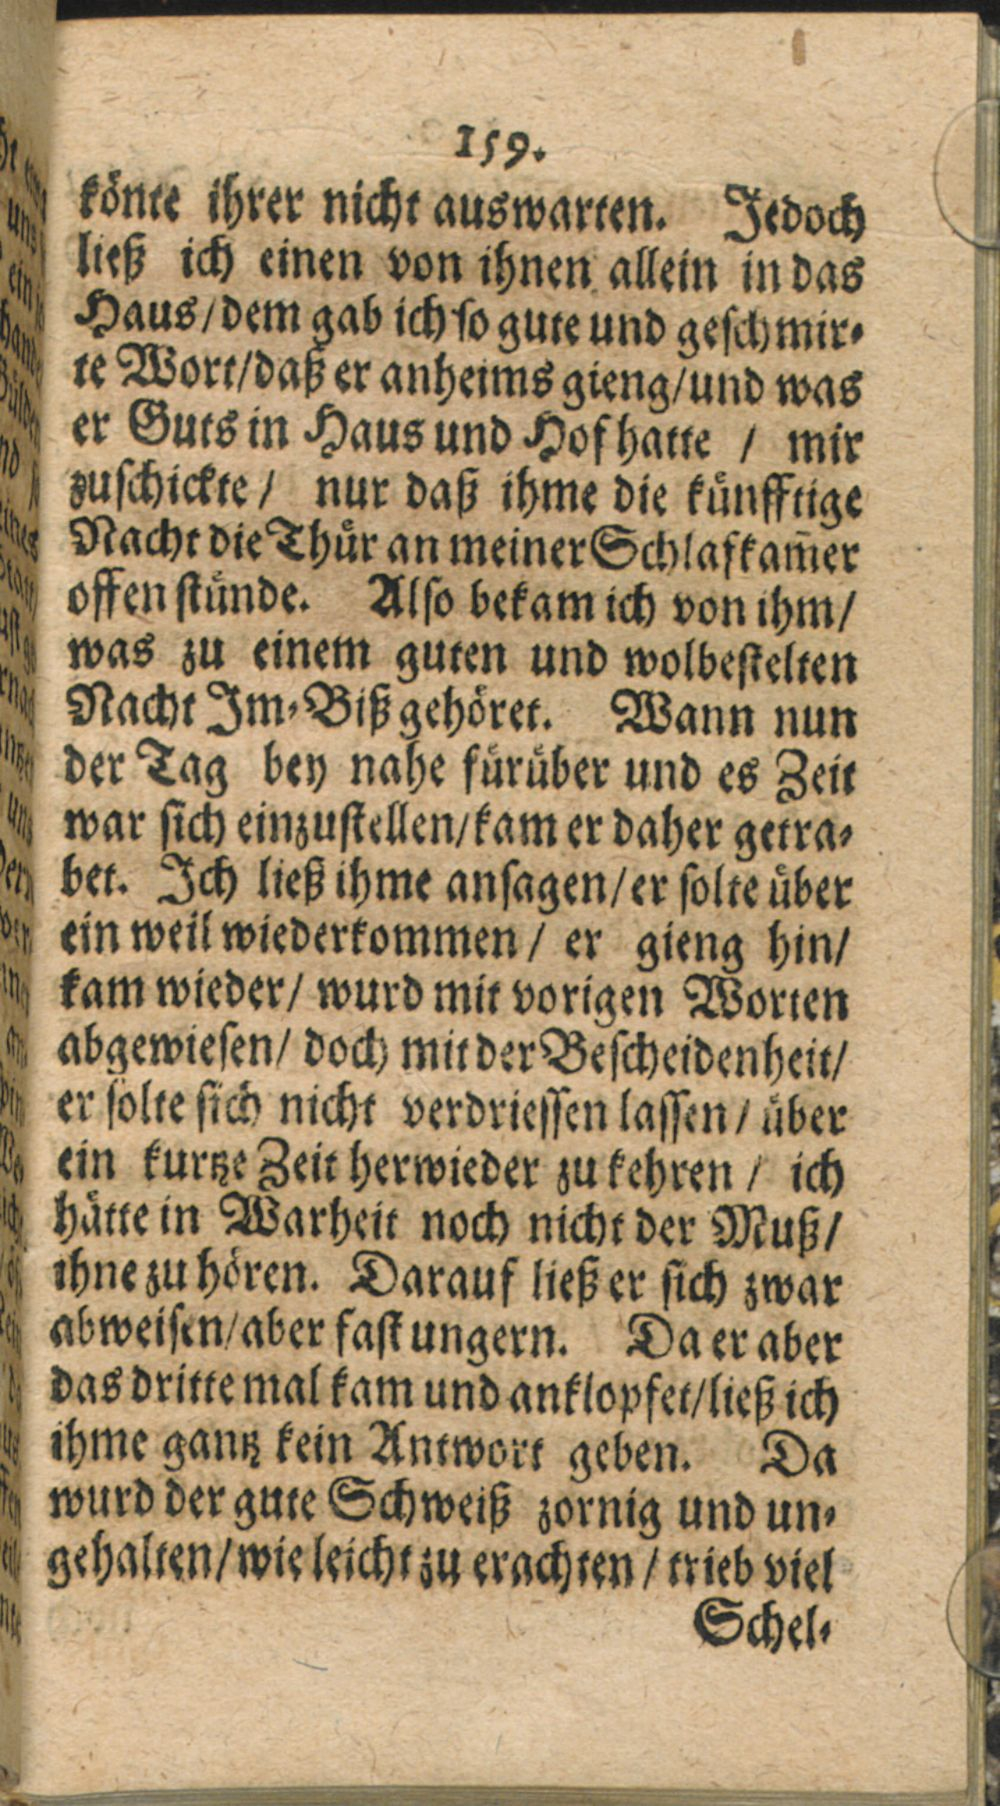 159.
könte ihrer nicht auswarten. Jedoch
ließ ich einen von ihnen allein in das
Haus/dem gab ich so gute und geschmir-
te Wort/daß er anheims gieng/und was
er Guts in Haus und Hof hatte / mir
zuschickte / nur daß ihme die künfftige
Nacht die Thür an meiner Schlafkam̃er
offen stünde. Also bekam ich von ihm/
was zu einem guten und wolbestelten
Nacht Im-Biß gehöret. Wann nun
der Tag bey nahe fürüber und es Zeit
war sich einzustellen/kam er daher getra-
bet. Ich ließ ihme ansagen/er solte über
ein weil wiederkommen / er gieng hin/
kam wieder/ wurd mit vorigen Worten
abgewiesen/ doch mit der Bescheidenheit/
er solte sich nicht verdriessen lassen / über
ein kurtze Zeit herwieder zu kehren / ich
hätte in Warheit noch nicht der Muß/
ihne zu hören. Darauf ließ er sich zwar
abweisen/aber fast ungern. Da er aber
das dritte mal kam und anklopfet/ließ ich
ihme gantz kein Antwort geben. Da
wurd der gute Schweiß zornig und un-
gehalten/wie leicht zu erachten / trieb viel
Schel-